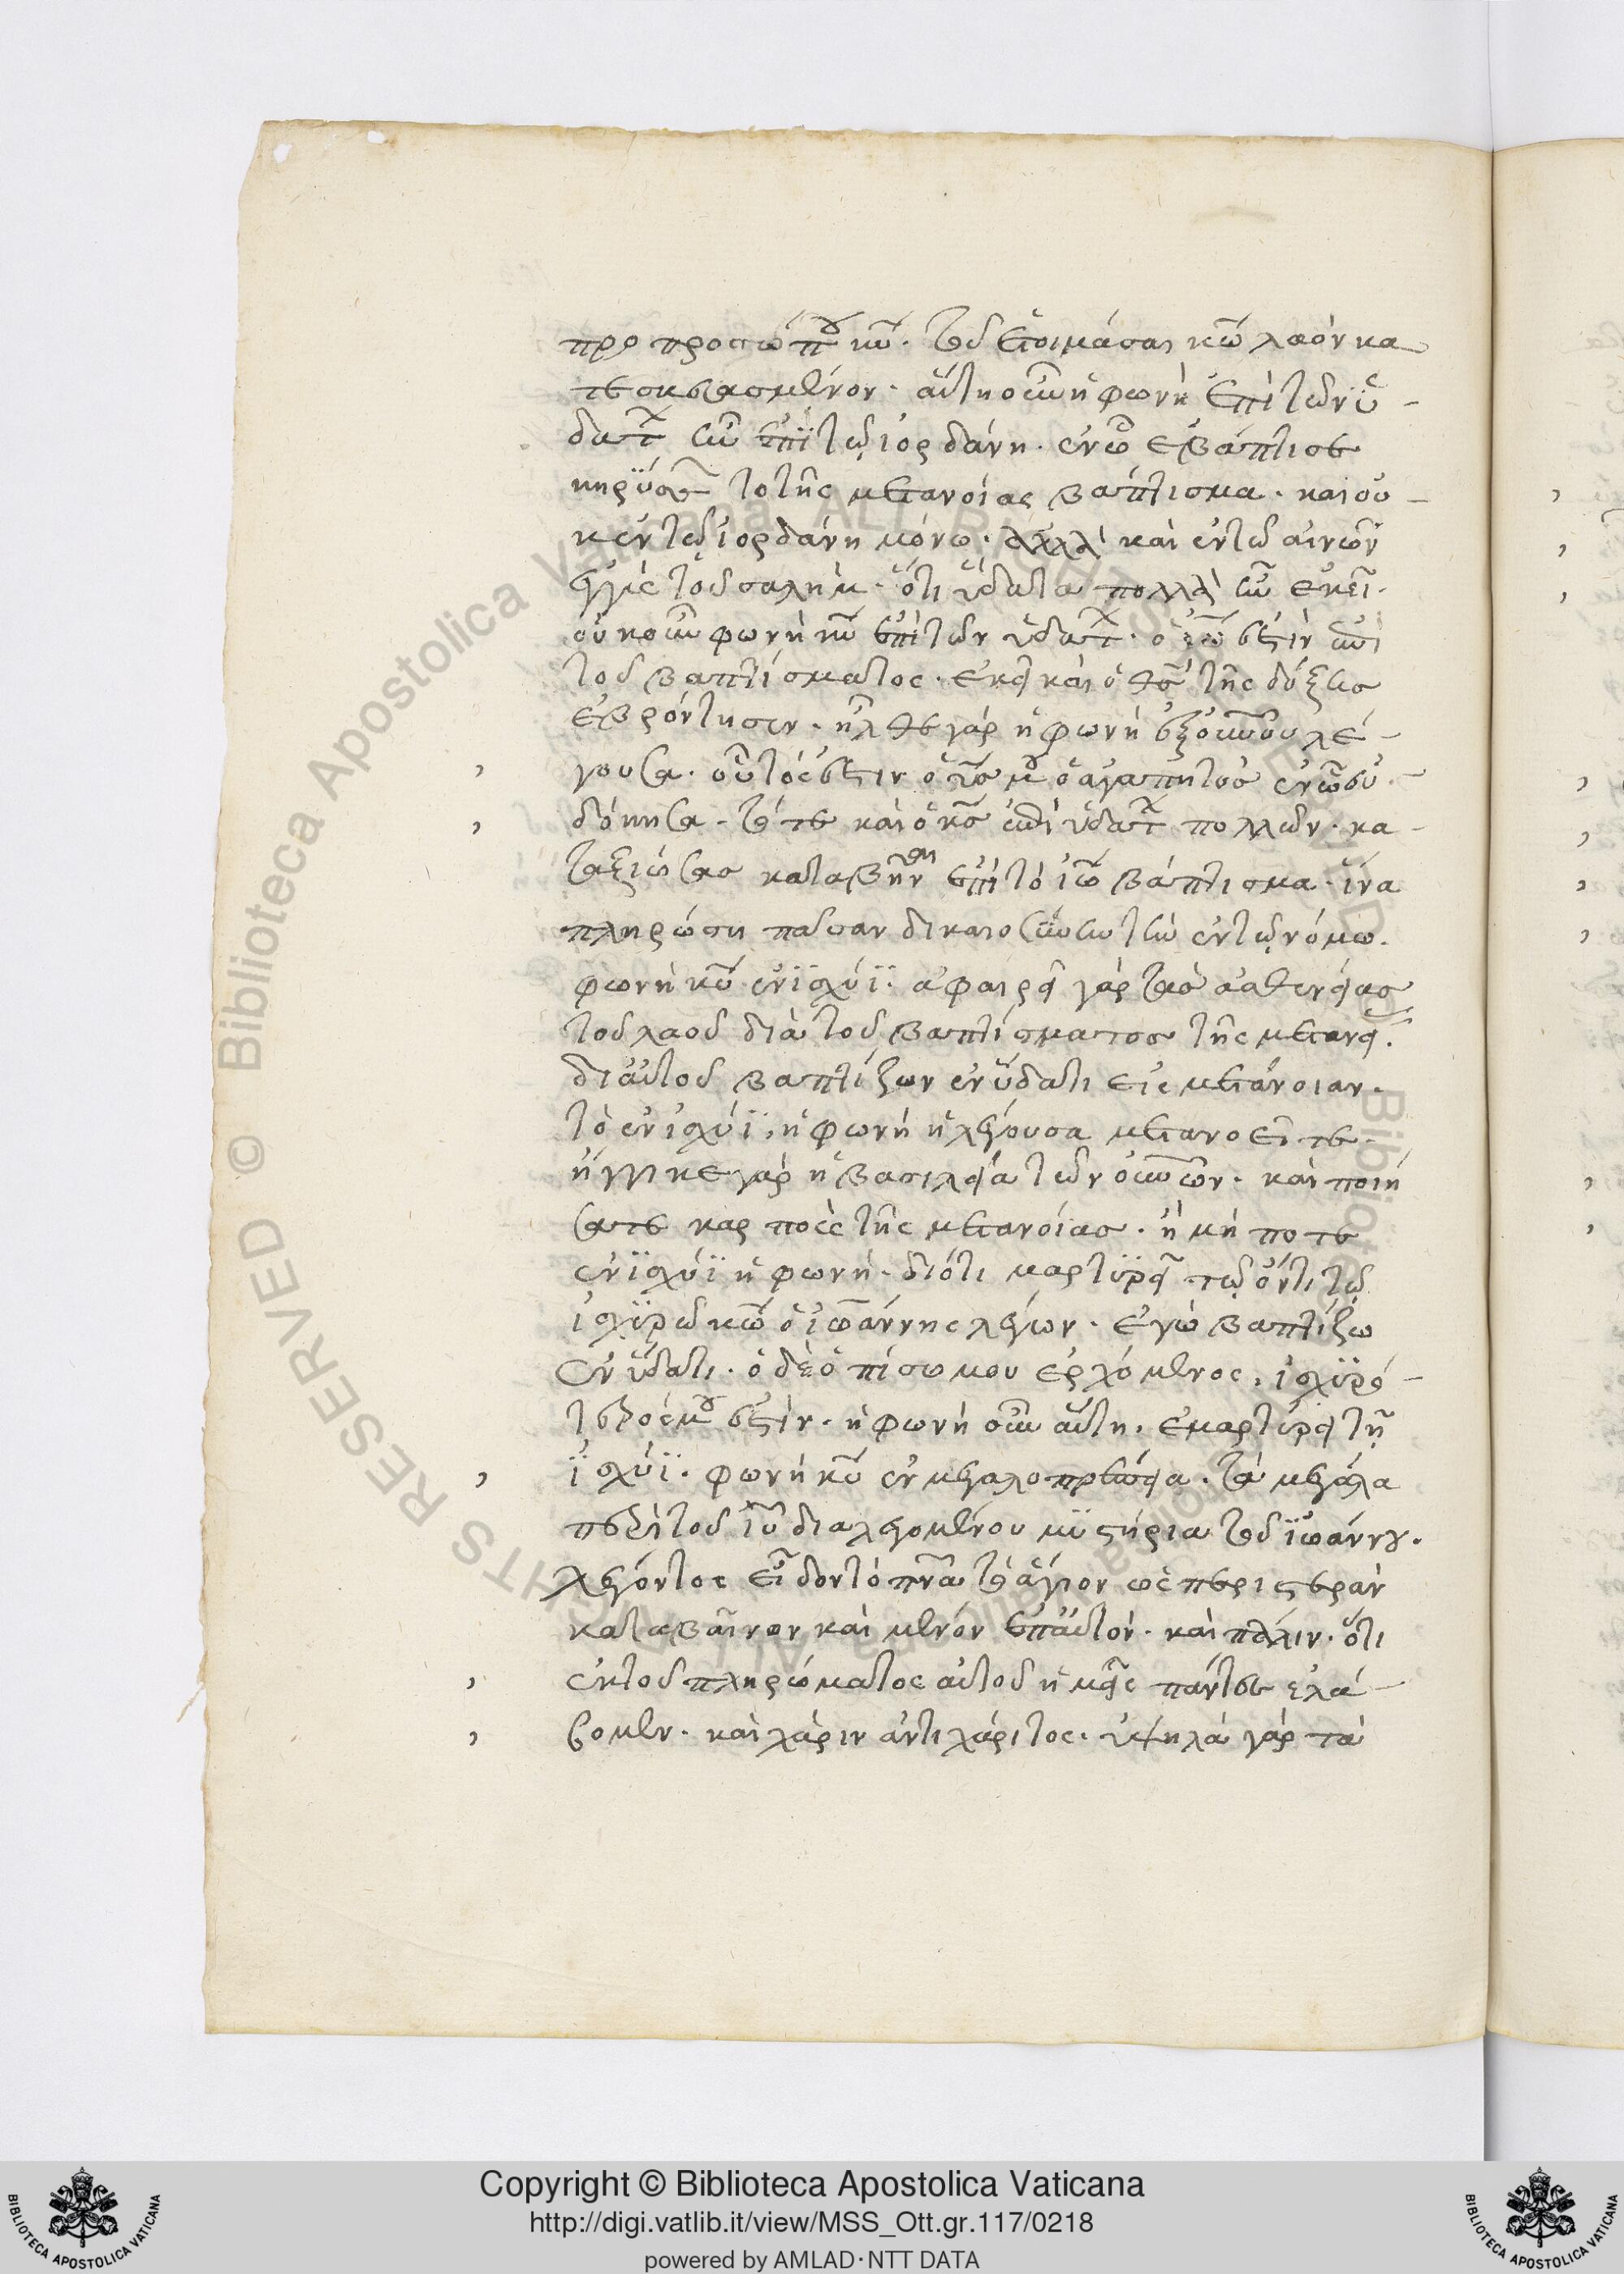 προ προσώπου κυ̅. τοῦ ἑτοιμάσαι κω̅ λαὸν κα
τεσκευασμένον. αὕτη οὖν ἡ φωνὴ ἐπὶ τῶν ὑ-
δάτων ἦν ἐπὶ τῷ ἰορδάνη. ἐν ὧ ἐβάπτισε
κηρύσσων τὸ τῆς μετανοίας βάπτισμα. καὶ οὐ-
κ ἐν τῷ ἰορδάνη μόνω. ἀλλὰ καὶ ἐν τῶ αἰνὼν
ἐγγὺς τοῦ σαλήμ. ὅτι ὕδατα πολλὰ ἦν ἐκεῖ.
οὐκοῦν φωνὴ κυ̅ ἐπὶ τῶν ὑδάτων. ὁ ἰω̅ ἐστὶν ἐπὶ
τοῦ βαπτίσματος. ἐκεῖ καὶ ὁ θσ̅ τῆς δόξης
ἐβρόντησεν. ἦλθε γὰρ ἡ φωνὴ ἐξ οὐνου λέ-
γουσα. οὗτός ἐστιν ὁ υσ̅ μου ὁ ἀγαπητὸς ἐν ὧ εὐ-
δόκησα. τότε καὶ ὁ κσ̅ ἐπὶ ὑδάτων πολλῶν. κα-
ταξιώσας καταβῆναι ἐπὶ τὸ ἰω̅ βάπτισμα. ἵνα
πληρώση πᾶσαν δικαιοσύνην τὴν ἐν τῷ νόμω.
φωνὴ κυ̅ ἐν ἰσχύϊ. ἀφαιρεῖ γὰρ τὰς ἀσθενείας
τοῦ λαοῦ διὰ τοῦ βαπτίσματος τῆς μετανοί.
δι αὐτοῦ βαπτίζων ἐν ὕδατι εἰς μετάνοιαν.
τὸ ἐν ἰσχύϊ, ἡ φωνὴ ἡ λέγουσα μετανοεῖτε.
ἤγγικε γὰρ ἡ βασιλεία τῶν οὐνων. καὶ ποιή
σατε καρποὺς τῆς μετανοίας. ἢ μή ποτε
ἐν ἰσχύϊ ἡ φωνή. διότι μαρτυρεῖ τῷ ὄντι τῷ
ἰσχυρῶ κω̅ ὁ ἰωάννης λέγων. ἐγὼ βαπτίζω
ἐν ὕδατι. ὁ δὲ ὀπίσω μου ἐρχόμενος, ἰσχυρό-
τερός μου ἐστίν. ἡ φωνὴ οὖν αὕτη. ἐμαρτύρει τῆ
ἰσχύϊ. φωνὴ κυ̅ ἐν μεγαλοπρεπεία. τὰ μεγάλα
περὶ τοῦ ιυ̅ διαλεγομένου μυστήρια τοῦ ἰωάννου.
λέγοντος εἶδον τὸ πνα̅ τὸ ἅγιον ὡς περιστερὰν
καταβαῖνον καὶ μένον ἐπ αὐτόν. καὶ πάλιν. ὅτι
ἐκ τοῦ πληρώματος αὐτοῦ ἡμεῖς πάντες ἐλά-
βομεν. καὶ χάριν ἀντὶ χάριτος. ὑψηλὰ γὰρ τὰ
Copyright © Biblioteca Apostolica Vaticana
http://digi.vatlib.it/view/MSS_Ott.gr.117/0218
powered by AMLAD·NTT DATA